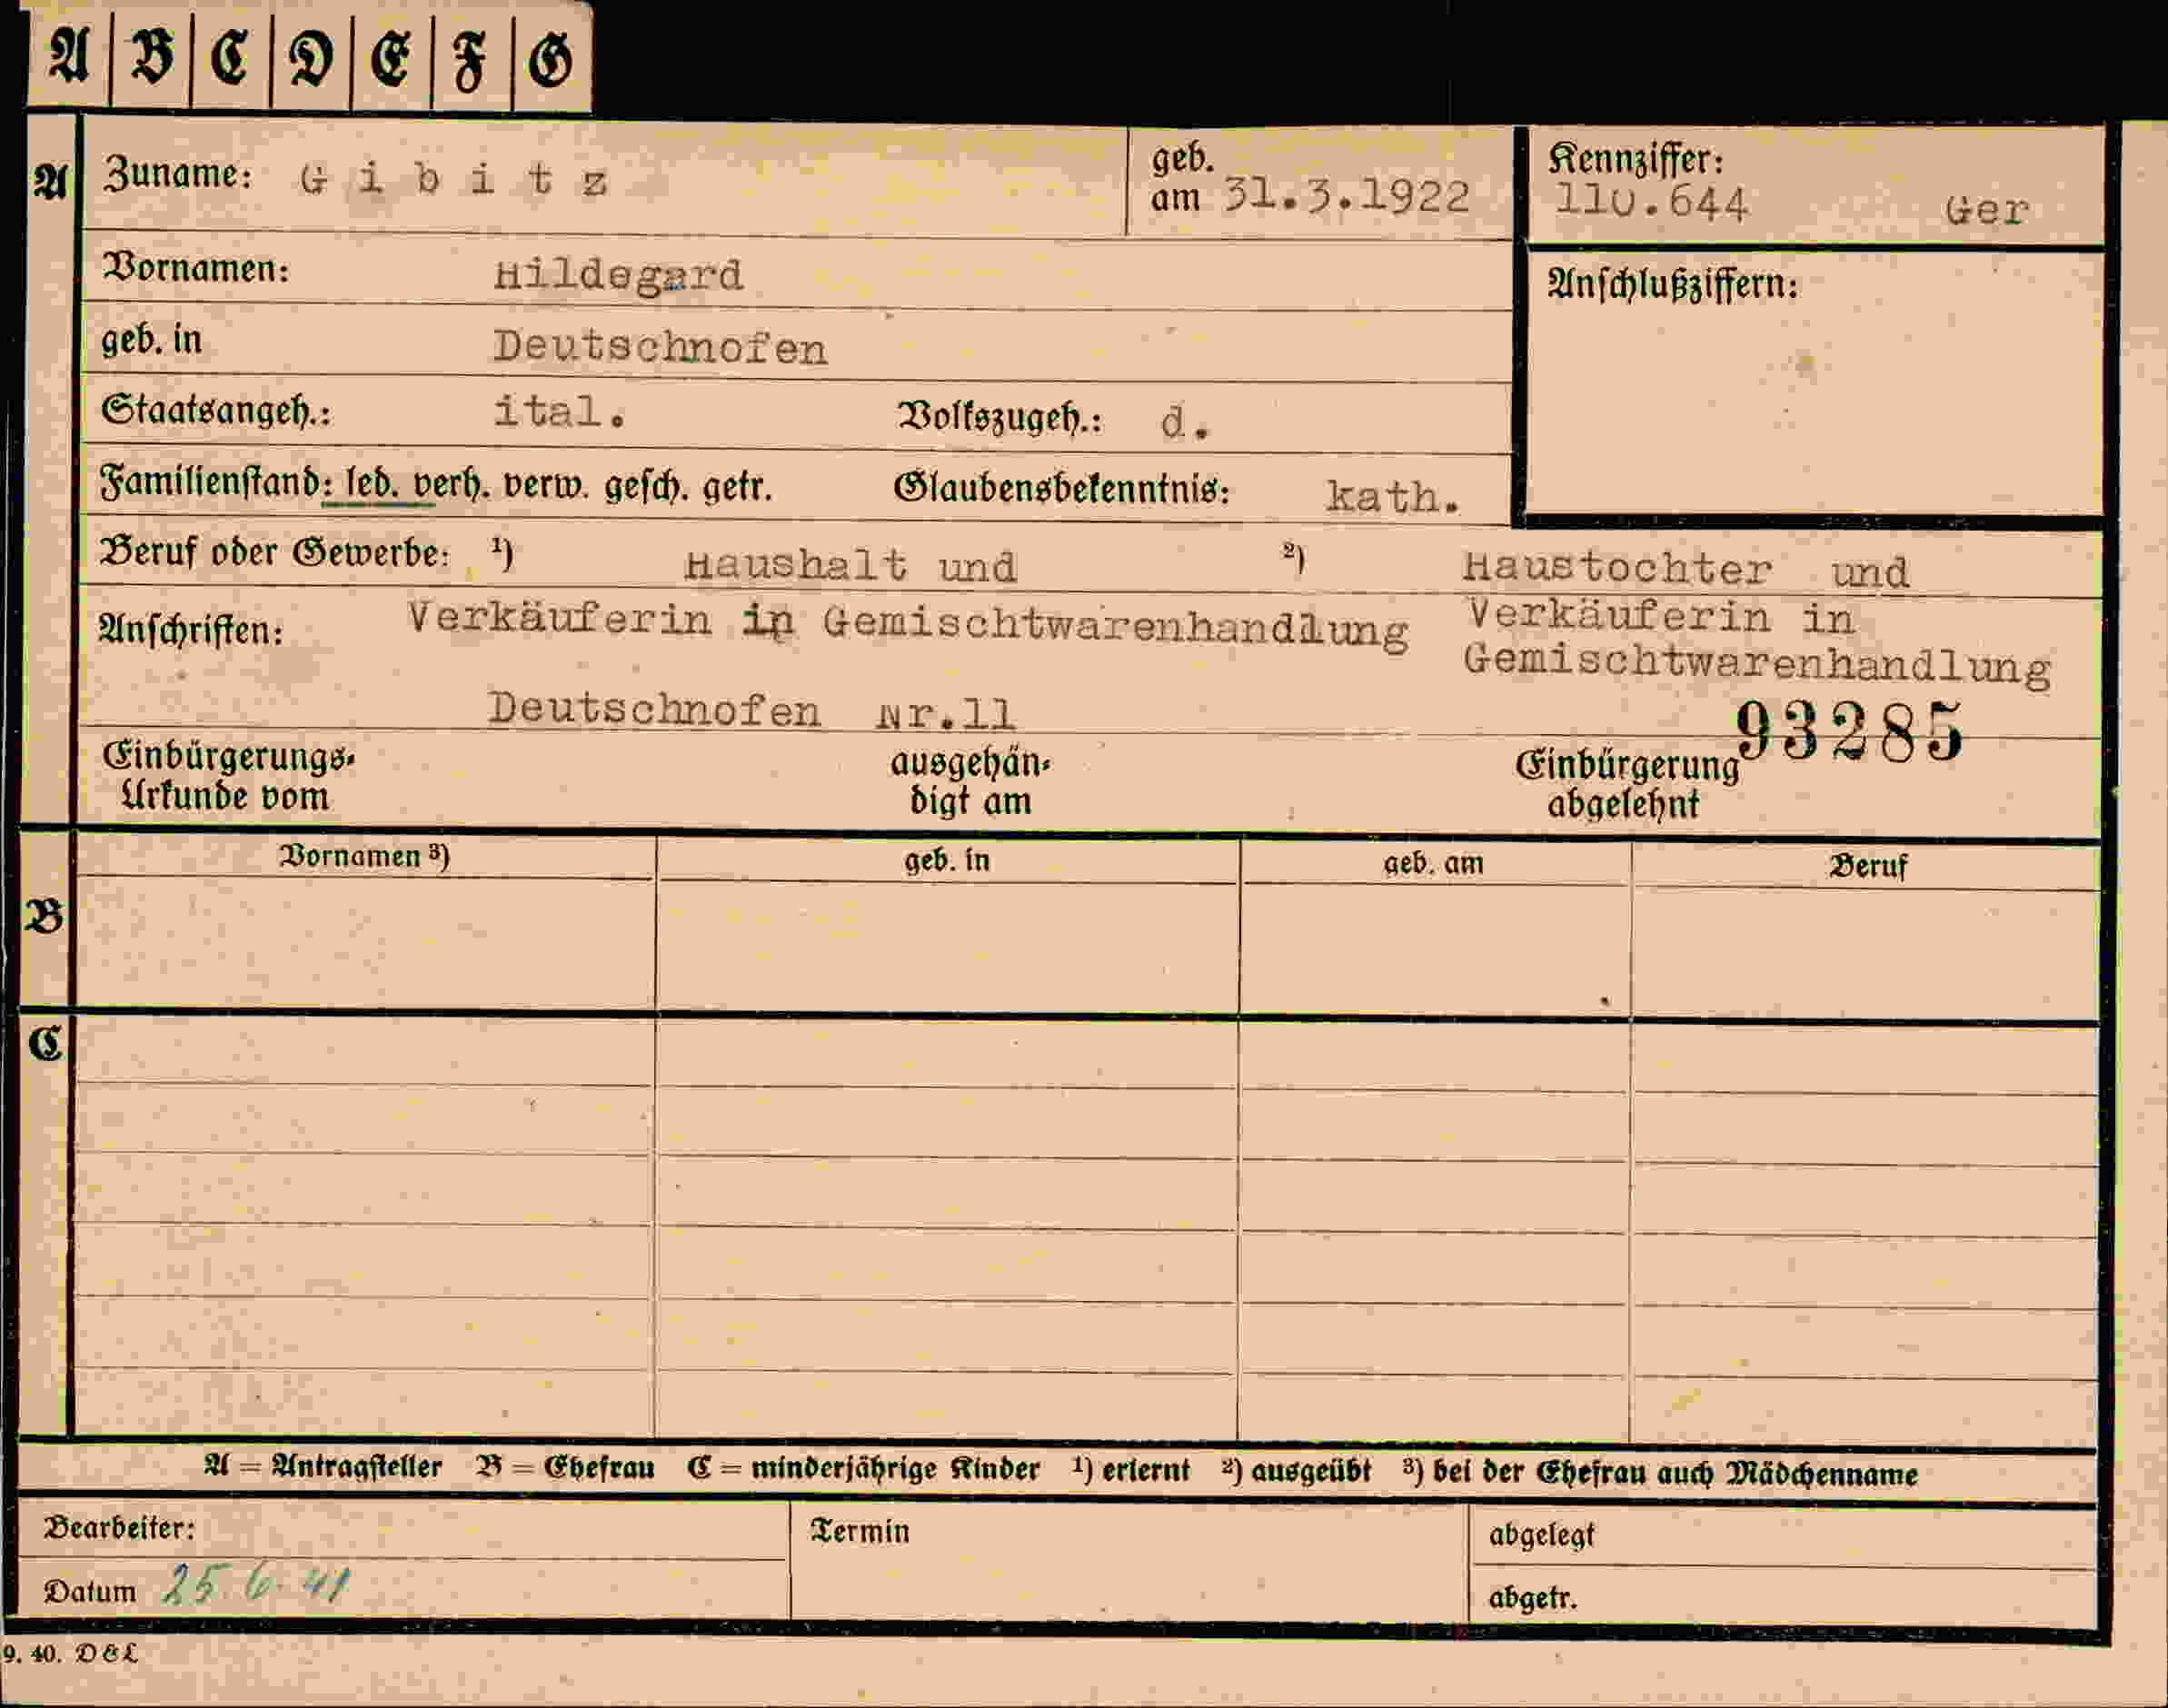 A B C D E F G
A Zuname: Gibitz geb. am 31.3.1922 Kennziffer: 110.644 Ger
Vornamen: Hildegard Anschlußziffern:
geb. in Deutschnofen
Staatsangeh.: ital. Volkszugeh.: d.
Familienstand: led. verh. verw. gesch. getr. Glaubensbekenntnis: kath.
Beruf oder Gewerbe: ¹) Haushalt und ²) Haustochter und
Anschriften: Verkäuferin in Gemischtwarenhandlung Verkäuferin in
Gemischtwarenhandlung
Deutschnofen Nr.11 93285
Einbürgerungs- ausgehän- Einbürgerung
Urkunde vom digt am abgelehnt
Vornamen ³) geb. in geb. am Beruf
B
C
A = Antragsteller B = Ehefrau C = minderjährige Kinder ¹) erlernt ²) ausgeübt ³) bei der Ehefrau auch Mädchenname
Bearbeiter: Termin abgelegt
Datum 25.6.41 abgetr.
9. 40. D&L